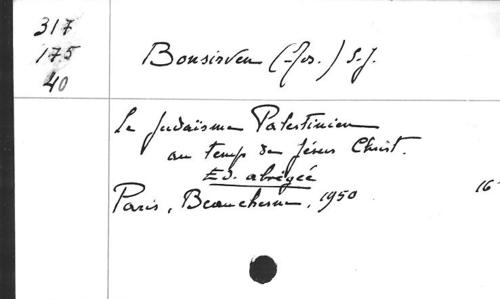 317
175
40
Bonsirven (Jos.) S.J.
Le Judaïsme Palestinien
au temps de Jésus Christ.
Ed. abrégée
Paris, Beauchesne, 1950
16